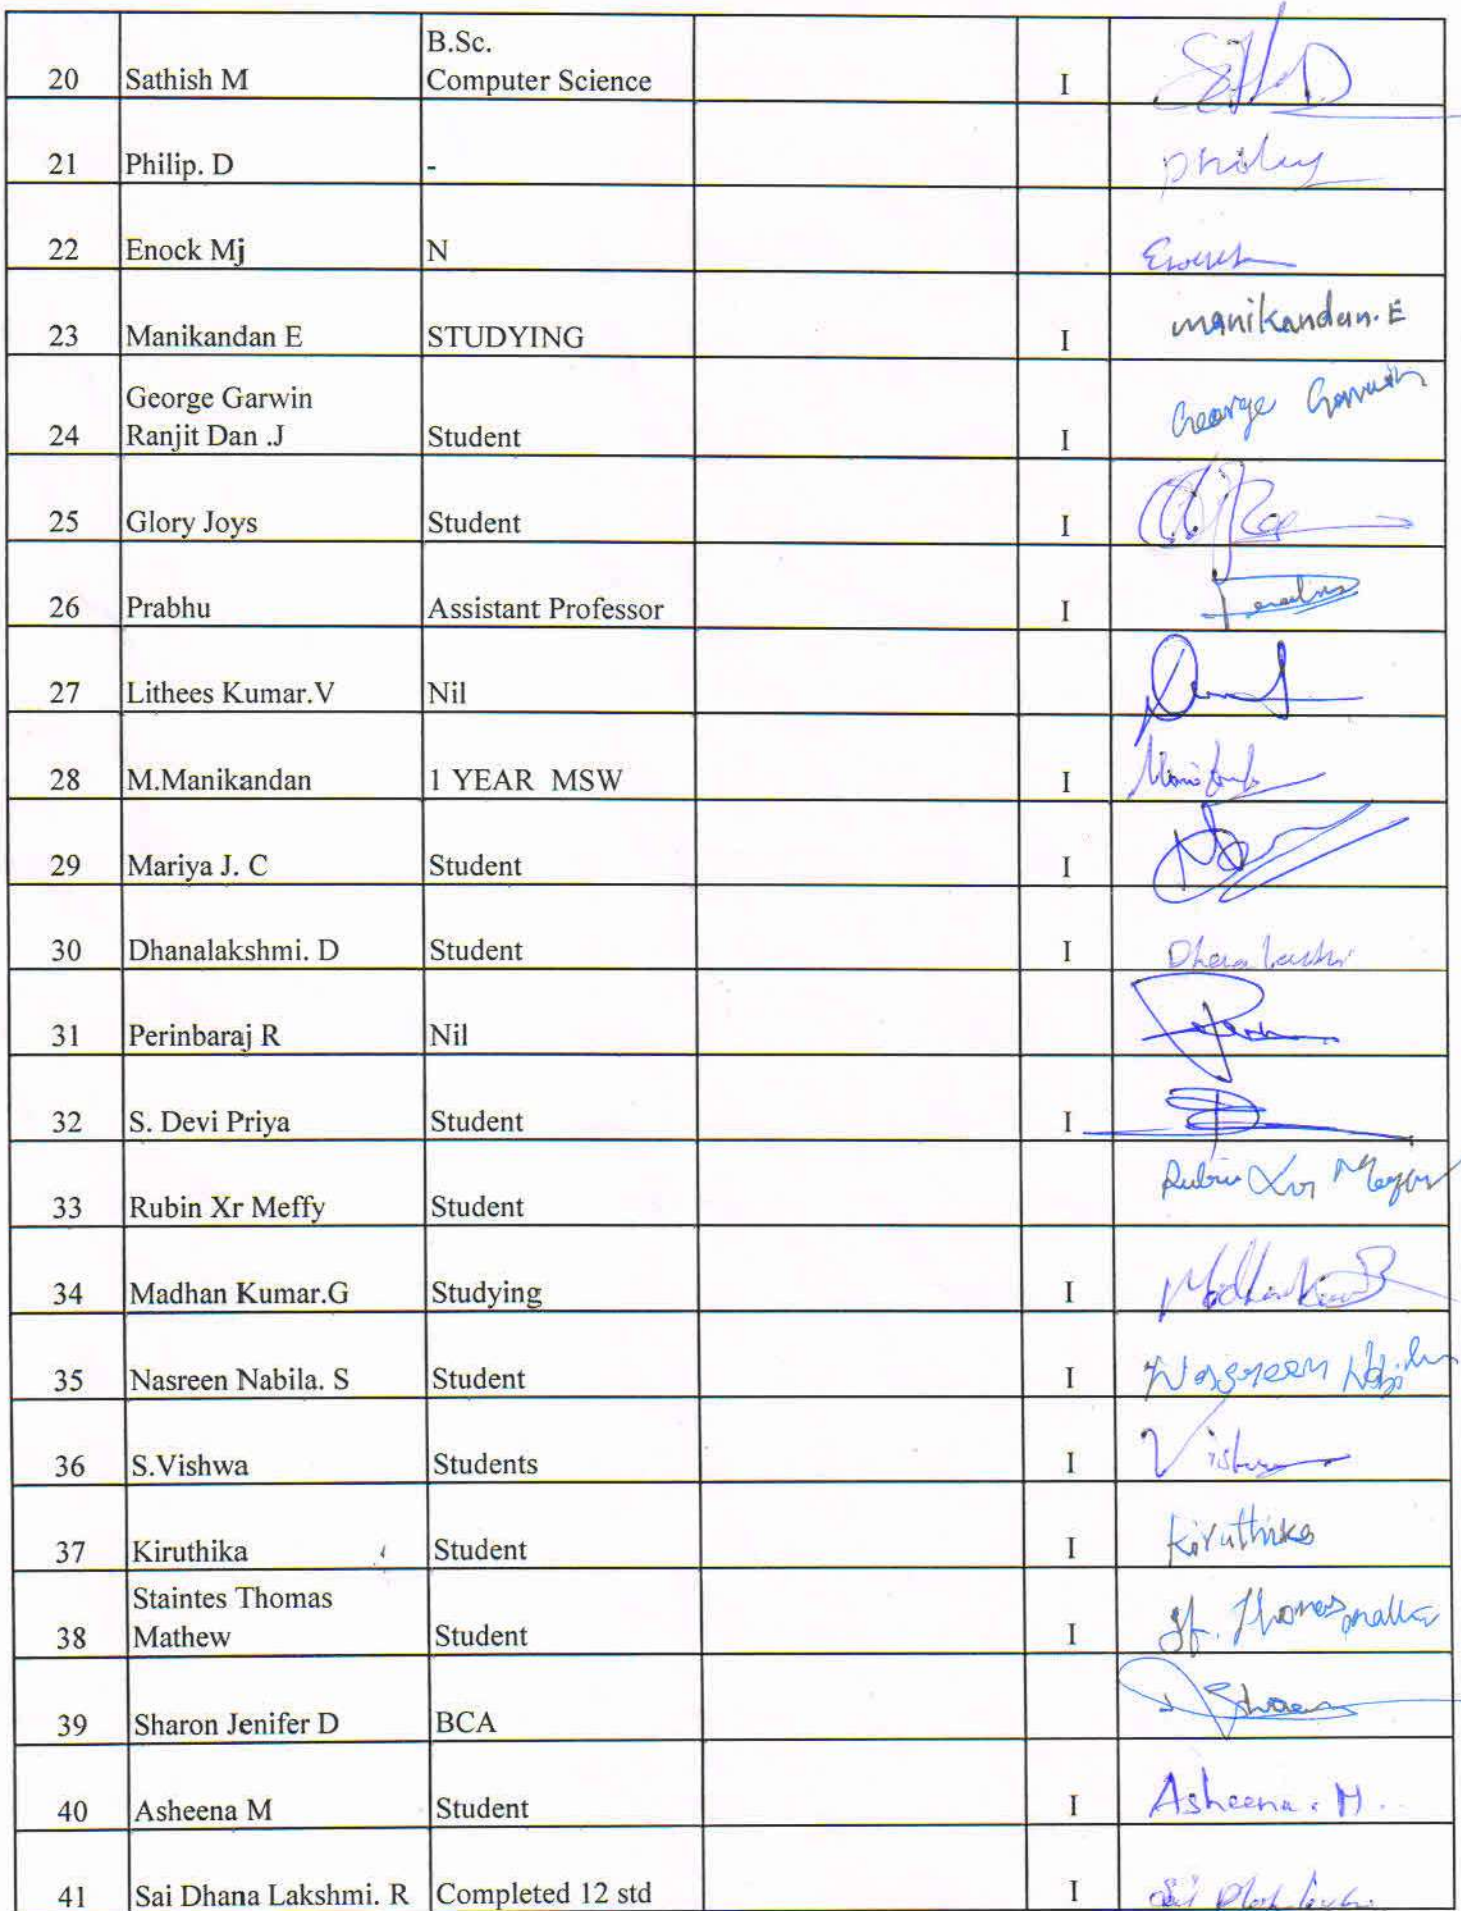 B.Sc.
20 Sathish M Computer Science I
21 Philip. D -
22 Enock Mj N
23 Manikandan E STUDYING I manikandan. E
George Garwin George
24 Ranjit Dan .J Student I
25 Glory Joys Student I
26 Prabhu Assistant Professor I
27 Lithees Kumar.V Nil
28 M.Manikandan 1 YEAR MSW I
29 Mariya J. C Student I
30 Dhanalakshmi. D Student I
31 Perinbaraj R Nil
32 S. Devi Priya Student I
33 Rubin Xr Meffy Student
34 Madhan Kumar.G Studying I
35 Nasreen Nabila. S Student I Nasreen
36 S.Vishwa Students I
37 Kiruthika Student I Kiruthika
Staintes Thomas
38 Mathew Student I Thomas
39 Sharon Jenifer D BCA
40 Asheena M Student I Asheena. M.
41 Sai Dhana Lakshmi. R Completed 12 std I